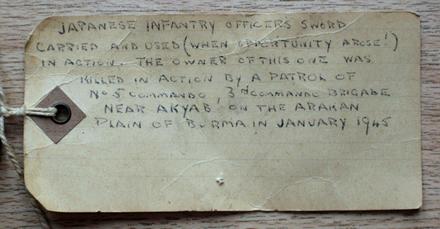 JAPANESE INFANTRY OFFICERS SWORD
CARRIED AND USED (WHEN OPPORTUNITY AROSE!)
IN ACTION. THE OWNER OF THIS ONE WAS
KILLED IN ACTION BY A PATROL OF
No 5 COMMANDO, 3rd COMMANDO BRIGADE
NEAR AKYAB, ON THE ARAKAN
PLAIN OF BURMA IN JANUARY 1945